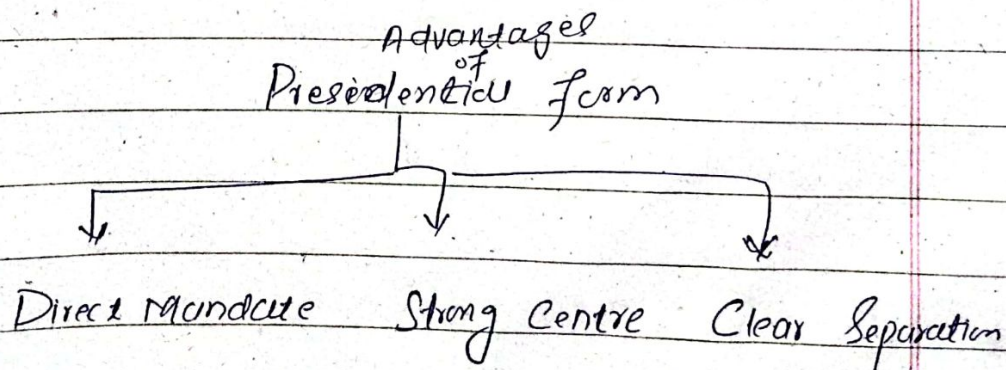 Advantages
of
Presidential form
Direct Mandate Strong Centre Clear Separation